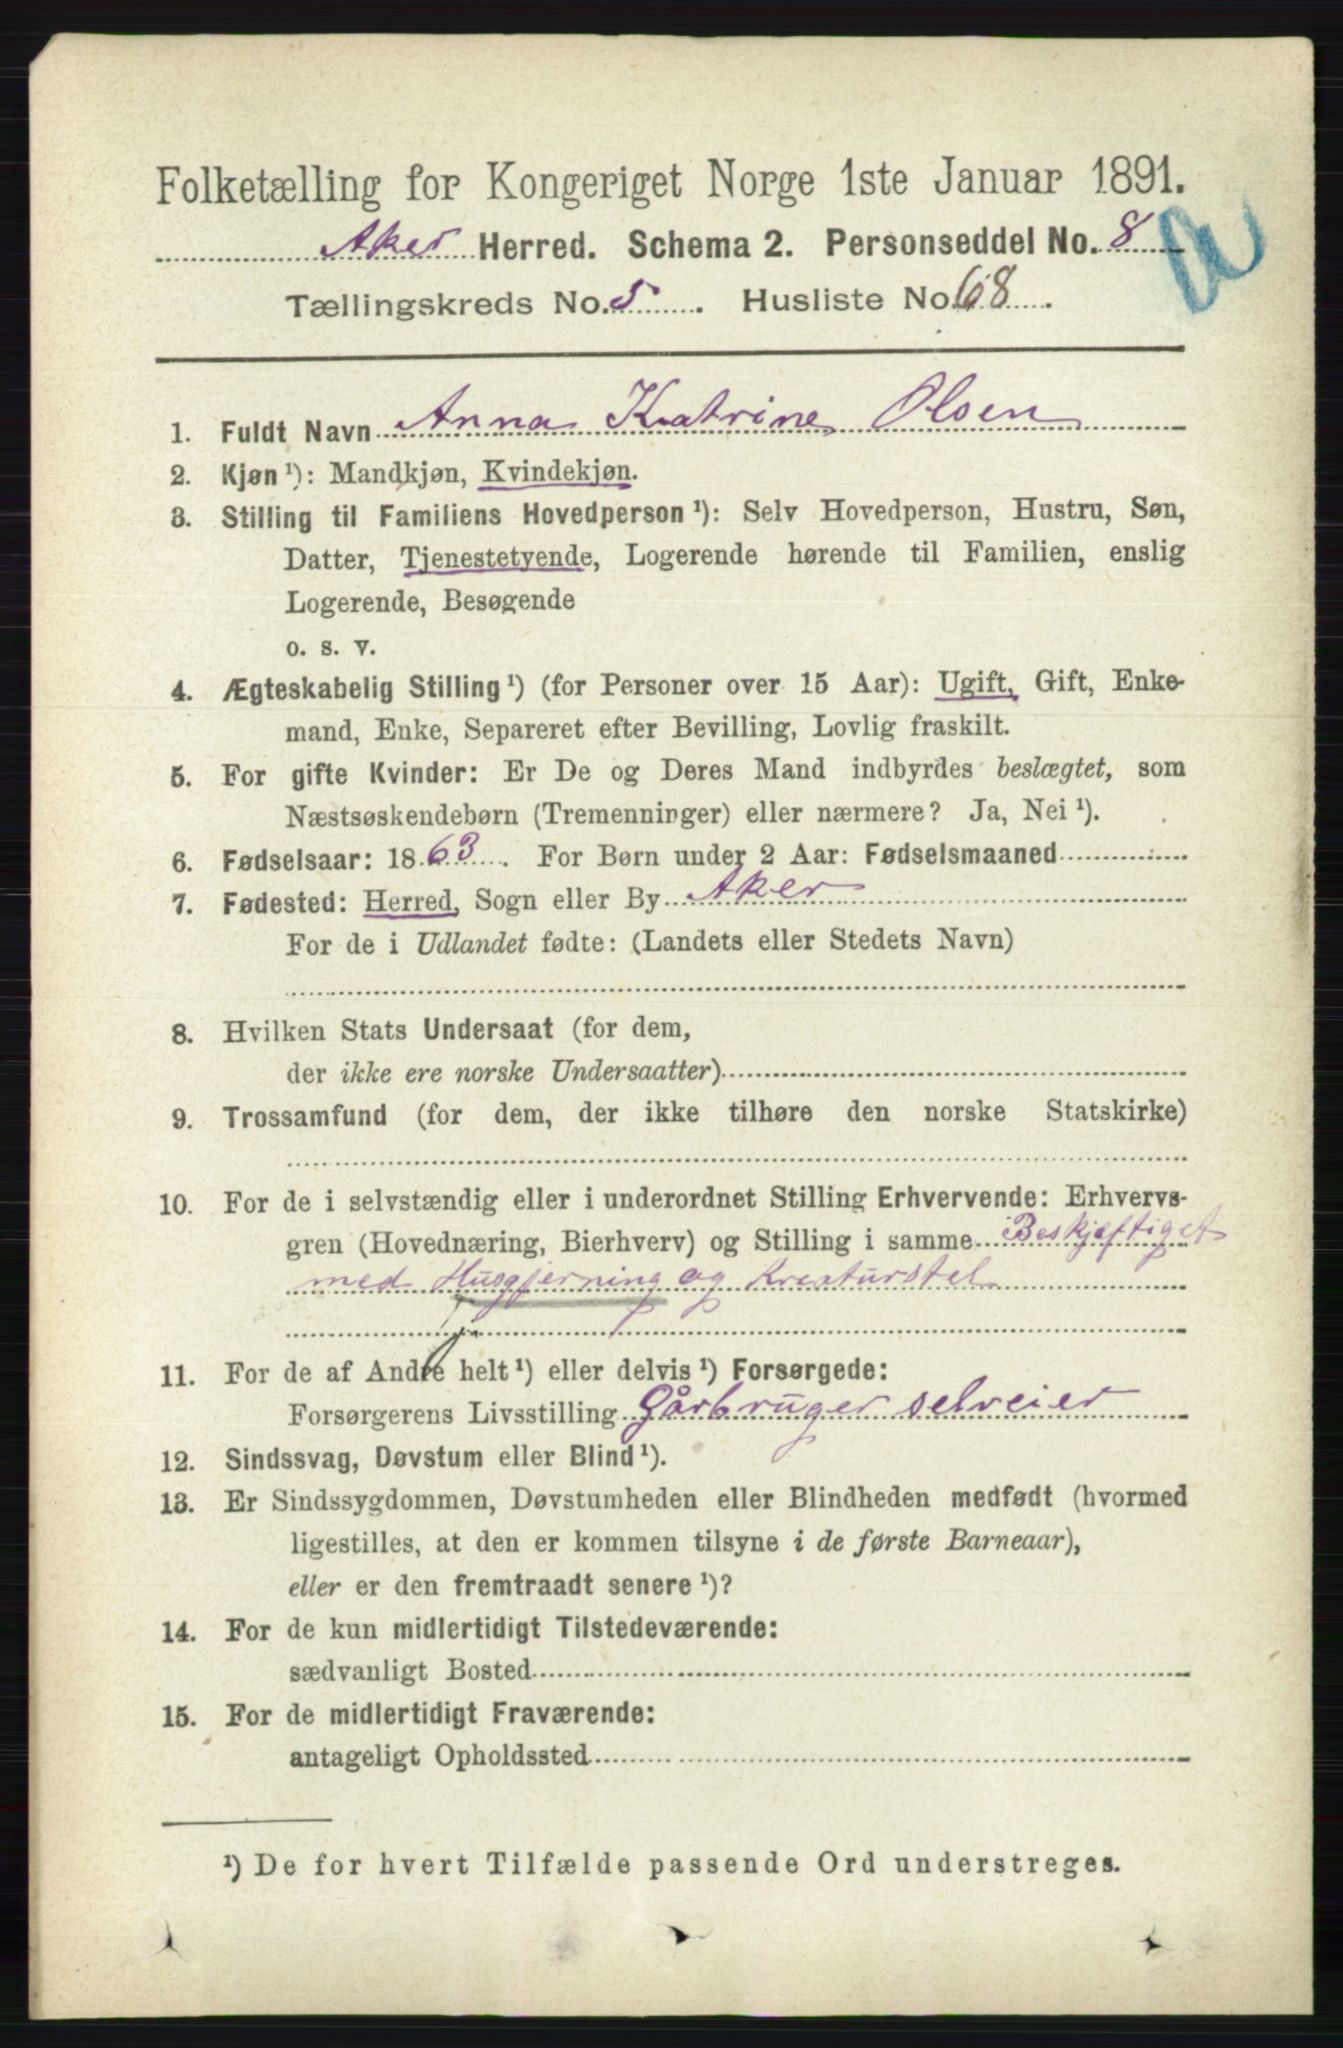 Folketælling for Kongeriget Norge 1ste Januar 1891.
Aker Herred. Schema 2. Personseddel No. 8
Tællingskreds No. 5. Husliste No. 68.
1. Fuldt Navn Anna Katrine Olsen
2. Kjøn ¹): Mandkjøn, Kvindekjøn.
3. Stilling til Familiens Hovedperson ¹): Selv Hovedperson, Hustru, Søn,
Datter, Tjenestetyende, Logerende hørende til Familien, enslig
Logerende, Besøgende
o. s. v.
4. Ægteskabelig Stilling ¹) (for Personer over 15 Aar): Ugift, Gift, Enke-
mand, Enke, Separeret efter Bevilling, Lovlig fraskilt.
5. For gifte Kvinder: Er De og Deres Mand indbyrdes beslægtet, som
Næstsøskendebørn (Tremenninger) eller nærmere? Ja, Nei ¹).
6. Fødselsaar: 1863. For Børn under 2 Aar: Fødselsmaaned
7. Fødested: Herred, Sogn eller By Aker
For de i Udlandet fødte: (Landets eller Stedets Navn)
8. Hvilken Stats Undersaat (for dem,
der ikke ere norske Undersaatter)
9. Trossamfund (for dem, der ikke tilhøre den norske Statskirke)
10. For de i selvstændig eller i underordnet Stilling Erhvervende: Erhvervs-
gren (Hovednæring, Bierhverv) og Stilling i samme Beskjæftiget
med Husgjerning og Kreaturstel
11. For de af Andre helt ¹) eller delvis ¹) Forsørgede:
Forsørgerens Livsstilling Gårbruger selveier
12. Sindssvag, Døvstum eller Blind ¹).
13. Er Sindssygdommen, Døvstumheden eller Blindheden medfødt (hvormed
ligestilles, at den er kommen tilsyne i de første Barneaar),
eller er den fremtraadt senere ¹)?
14. For de kun midlertidigt Tilstedeværende:
sædvanligt Bosted
15. For de midlertidigt Fraværende:
antageligt Opholdssted
¹) De for hvert Tilfælde passende Ord understreges.